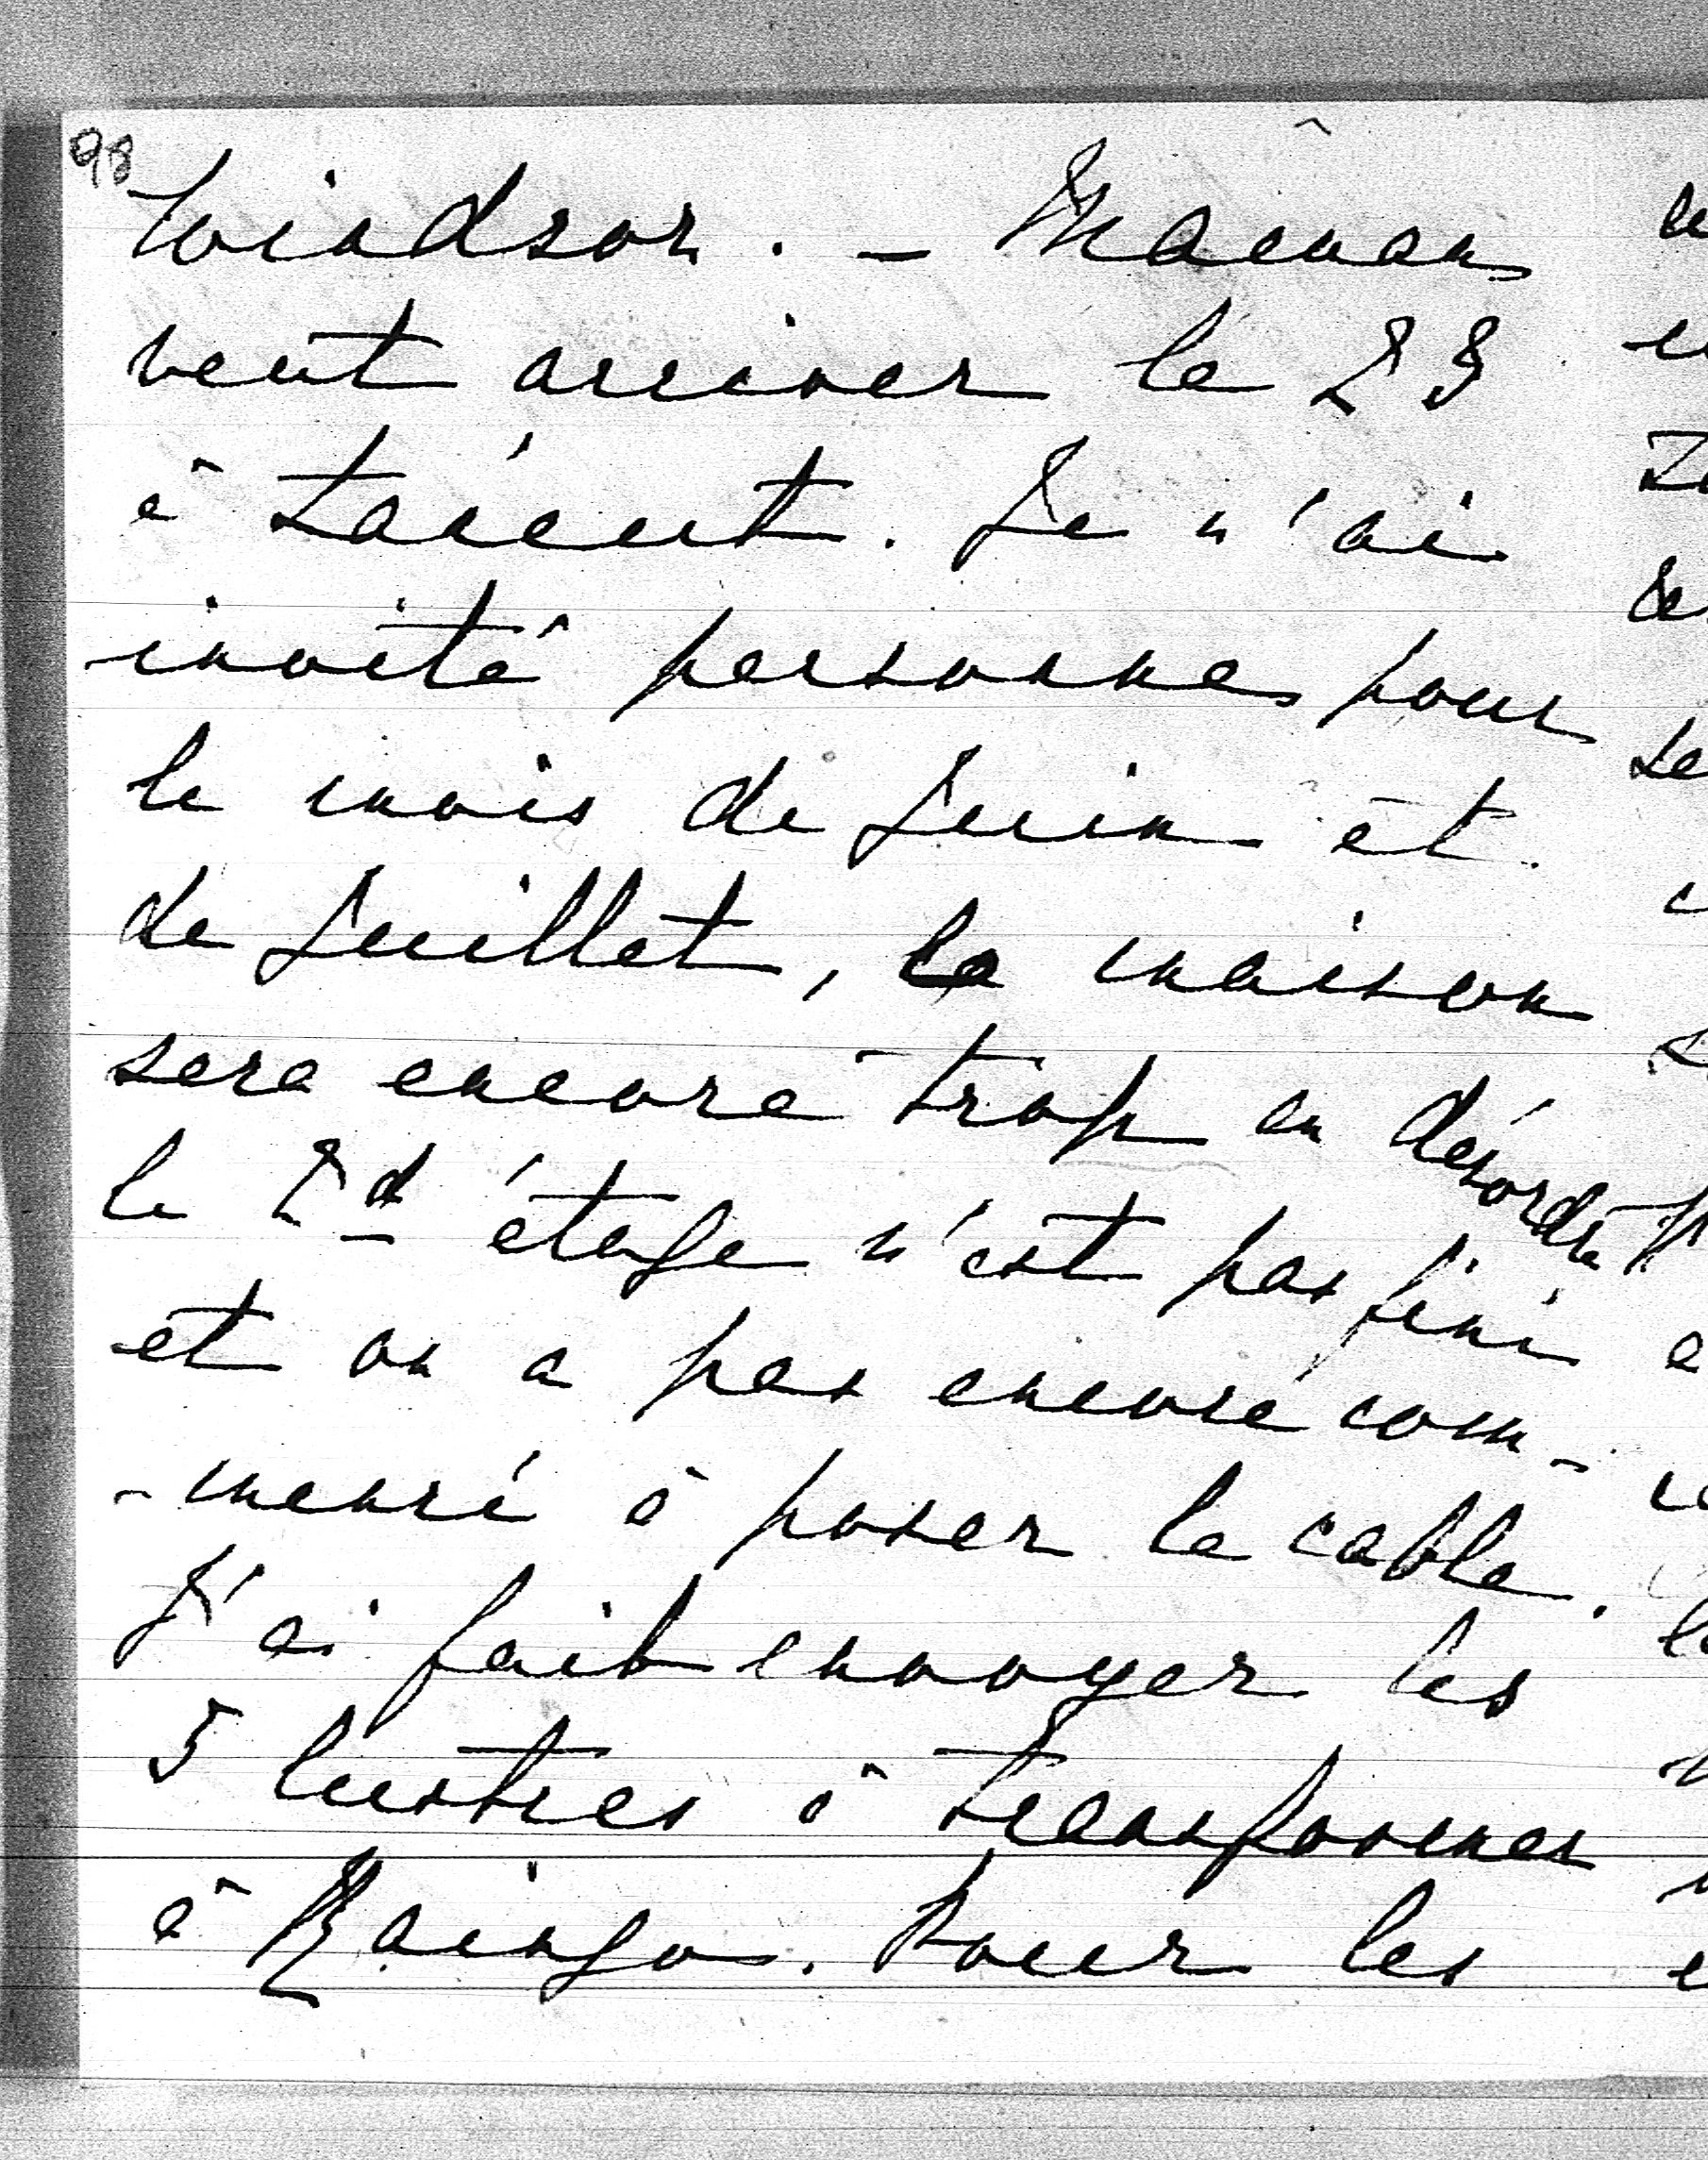 98
Windsor. – Maman
veut arriver le 23
à Taicut. Je n'ai
invité personne pour
le mois de Juin et
de Juillet, la maison
sera encore trop en désordre
le 2d étage n'est pas fini
et on a pas encore com-
-mencé à poser le cable.
J'ai fait envoyer les
5 lustres à transformer
à Raingo. Pour les